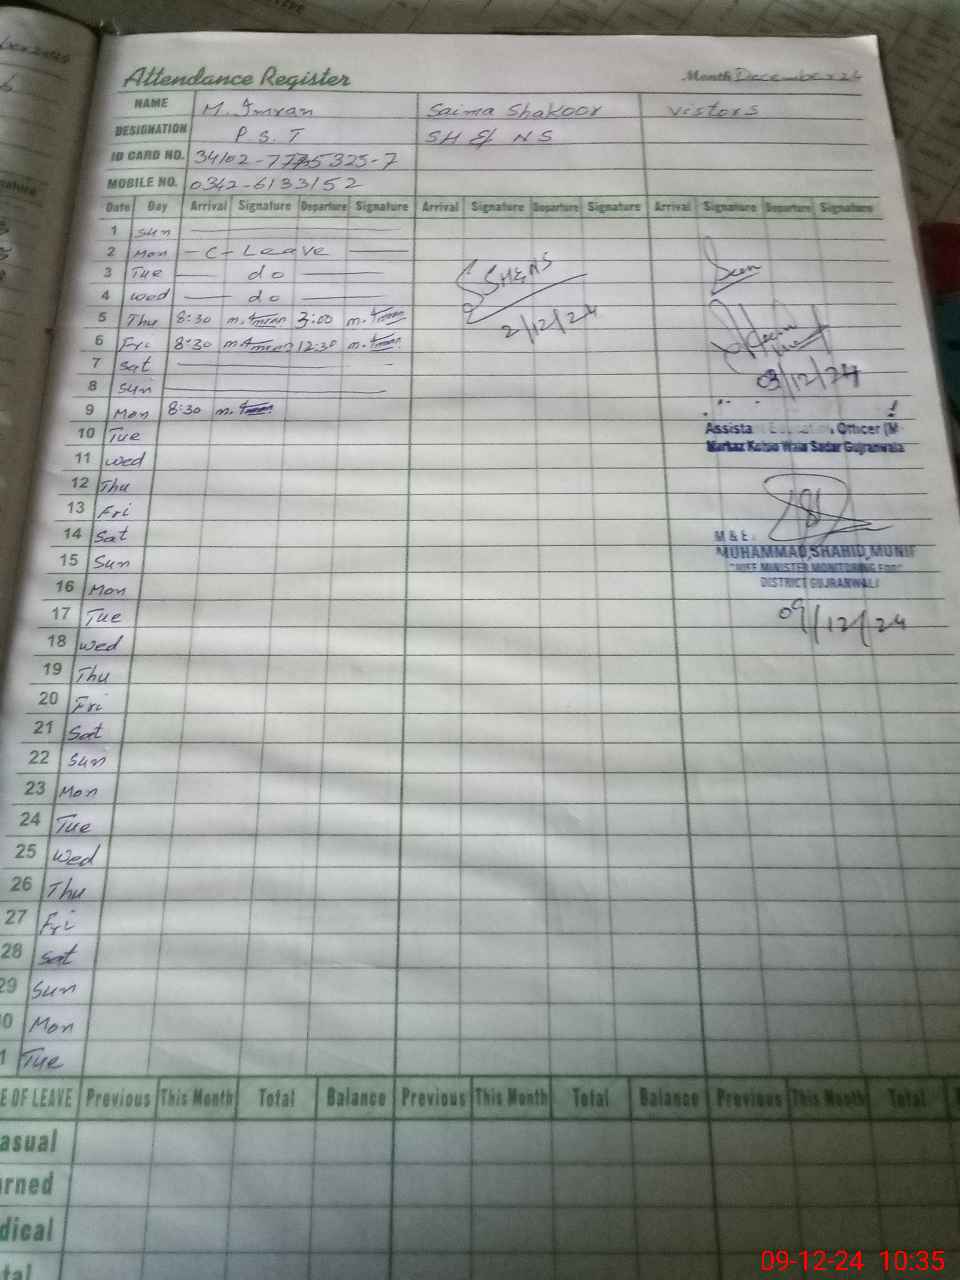 Attendance Register Month December 24
NAME M. Imran Saima Shakoor Vistors
DESIGNATION P S T SH & NS
ID CARD NO.
MOBILE NO. 0342-6133152
Date Day Arrival Signature Departure Signature Arrival Signature Departure Signature Arrival Signature Departure Signature
1 Sun
2 Mon - C - Leave
3 Tue do
4 Wed do
5 Thu 8:30 m. Imran 3:00 m. Imran
6 Fri 8:30 m. Imran 12:30 m. Imran
7 Sat
8 Sun
9 Mon 8:30 m. Imran
10 Tue
11 Wed
12 Thu
13 Fri
14 Sat
15 Sun
16 Mon
17 Tue
18 Wed
19 Thu
20 Fri
21 Sat
22 Sun
23 Mon
24 Tue
25 Wed
26 Thu
27 Fri
28 Sat
29 Sun
0 Mon
1 Tue
SHENS
2/12/24
Seen
03/12/24
Officer (M
Markaz Wala Sadar Gujranwala
M & E
MUHAMMAD SHAHID MUNIR
CHIEF MINISTER MONITORING
DISTRICT GUJRANWALA
09/12/24
E OF LEAVE Previous This Month Total Balance Previous This Month Total Balance Previous This Month Total
asual
rned
dical
tal
09-12-24 10:35